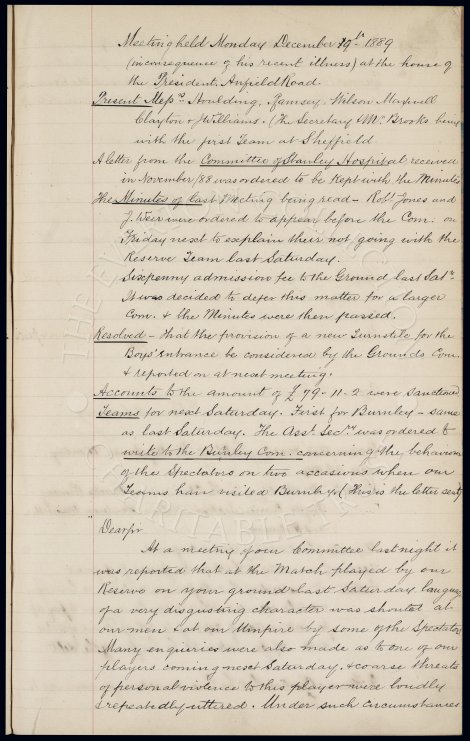 Meeting held Monday December 19th 1889
(in consequence of his recent illness) at the house of
the President, Anfield Road.
Present Messrs Houlding, Ramsey, Wilson Maxwell
Clayton & J Williams. (The Secretary & Mr. Brooks being
with the first Team at Sheffield
A letter from the Committee of Stanley Hospital received
in November/88 was ordered to be kept with the Minutes
The Minutes of last Meeting being read - Robt Jones and
J. Weir were ordered to appear before the Com. on
Friday next to explain their not going with the
Reserve Team last Saturday.
Sixpenny admission fee to the Ground last Saty.
It was decided to defer this matter for a larger
Com. & the Minutes were then passed.
Resolved - that the provision of a new Turnstile for the
Boys' Entrance be considered by the Grounds Com.
& reported on at next meeting.
Accounts to the amount of £79-11-2 were sanctioned
Teams for next Saturday. First for Burnley - same
as last Saturday. The Asst. Secy was ordered to
write to the Burnley Com. concerning the behaviour
of the Spectators on two occasions when our
Teams have visited Burnley (This is the letter sent)
Dear Sir
At a meeting of our Committee last night it
was reported that at the Match played by our
Reserve on your ground last Saturday language
of a very disgusting character was shouted at
our men & at our Umpire by some of the Spectators
Many enquiries were also made as to one of our
players coming next Saturday, & coarse threats
of personal violence to this player were loudly
& repeatedly uttered. Under such circumstances